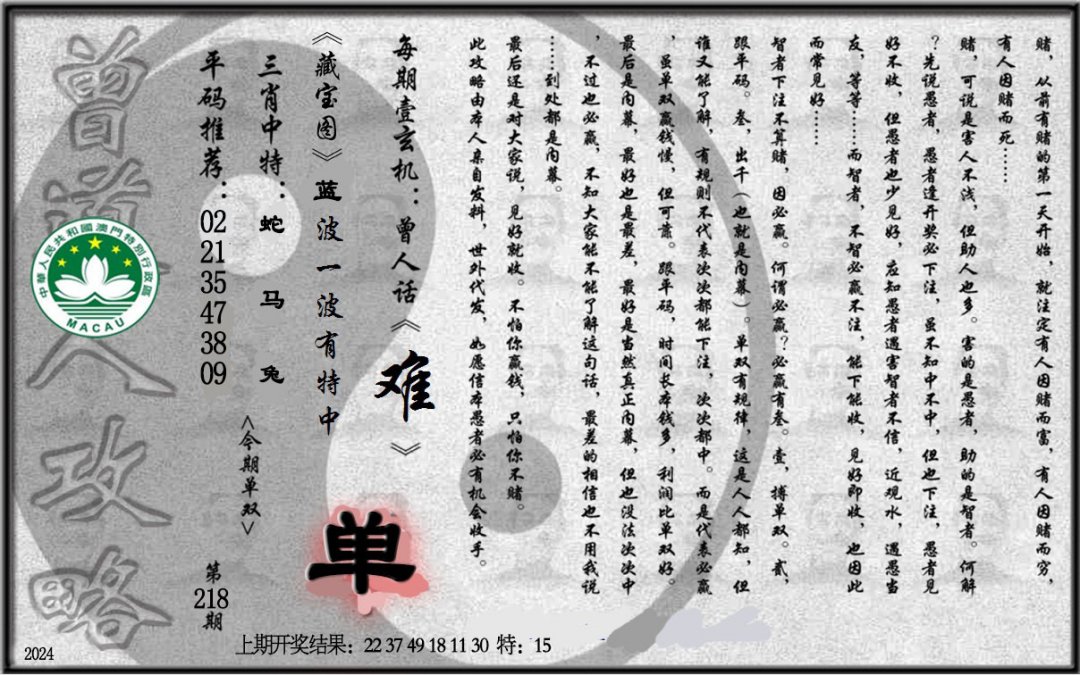 赌，从前有赌的第一天开始，就注定有人因赌而富，有人因赌而穷，
有人因赌而死……
赌，可说是害人不浅，但助人也多。害的是愚者，助的是智者。何解
？先说愚者，愚者逢开奖必下注，虽不知中不中，但也下注，愚者见
好不收，但愚者也少见好，应知愚者遇害智者不信，近观水，遇愚当
友，等等……而智者，不智必赢不注，能下能收，见好即收，也因此
而常见好……
智者下注不算赌，因必赢。何谓必赢？必赢有叁。壹，搏单双。贰，
跟平码。叁，出千（也就是内幕）。单双有规律，这是人人都知，但
谁又能了解，有规则不代表次次都能下注，次次都中。而是代表必赢
，虽单双赢钱慢，但可靠。跟平码，时间长本钱多，利润比单双好。
最后是内幕，最好也是最差，最好是当然真正内幕，但也没法次次中
，不过也必赢，不知大家能不能了解这句话，最差的相信也不用我说
……到处都是内幕。
最后还是对大家说，见好就收。不怕你赢钱，只怕你不赌。
此攻略由本人亲自发料，世外代发，如愿信本愚者必有机会收手。
每期壹玄机：曾人话《难》
《藏宝图》蓝波一波有特中
三肖中特：蛇 马 兔
<今期单双>
单
平码推荐：
02
21
35
47
38
09
第
218
期
曾道人攻略
中華人民共和國澳門特別行政區
MACAU
上期开奖结果：22 37 49 18 11 30 特：15
2024